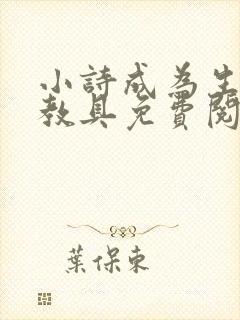 小詩成為生
教具免費閱
葉保東